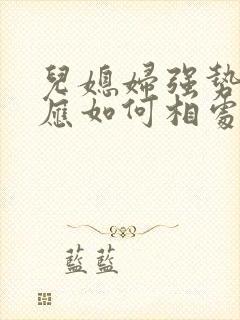 兒媳婦強勢
應如何相處
藍藍